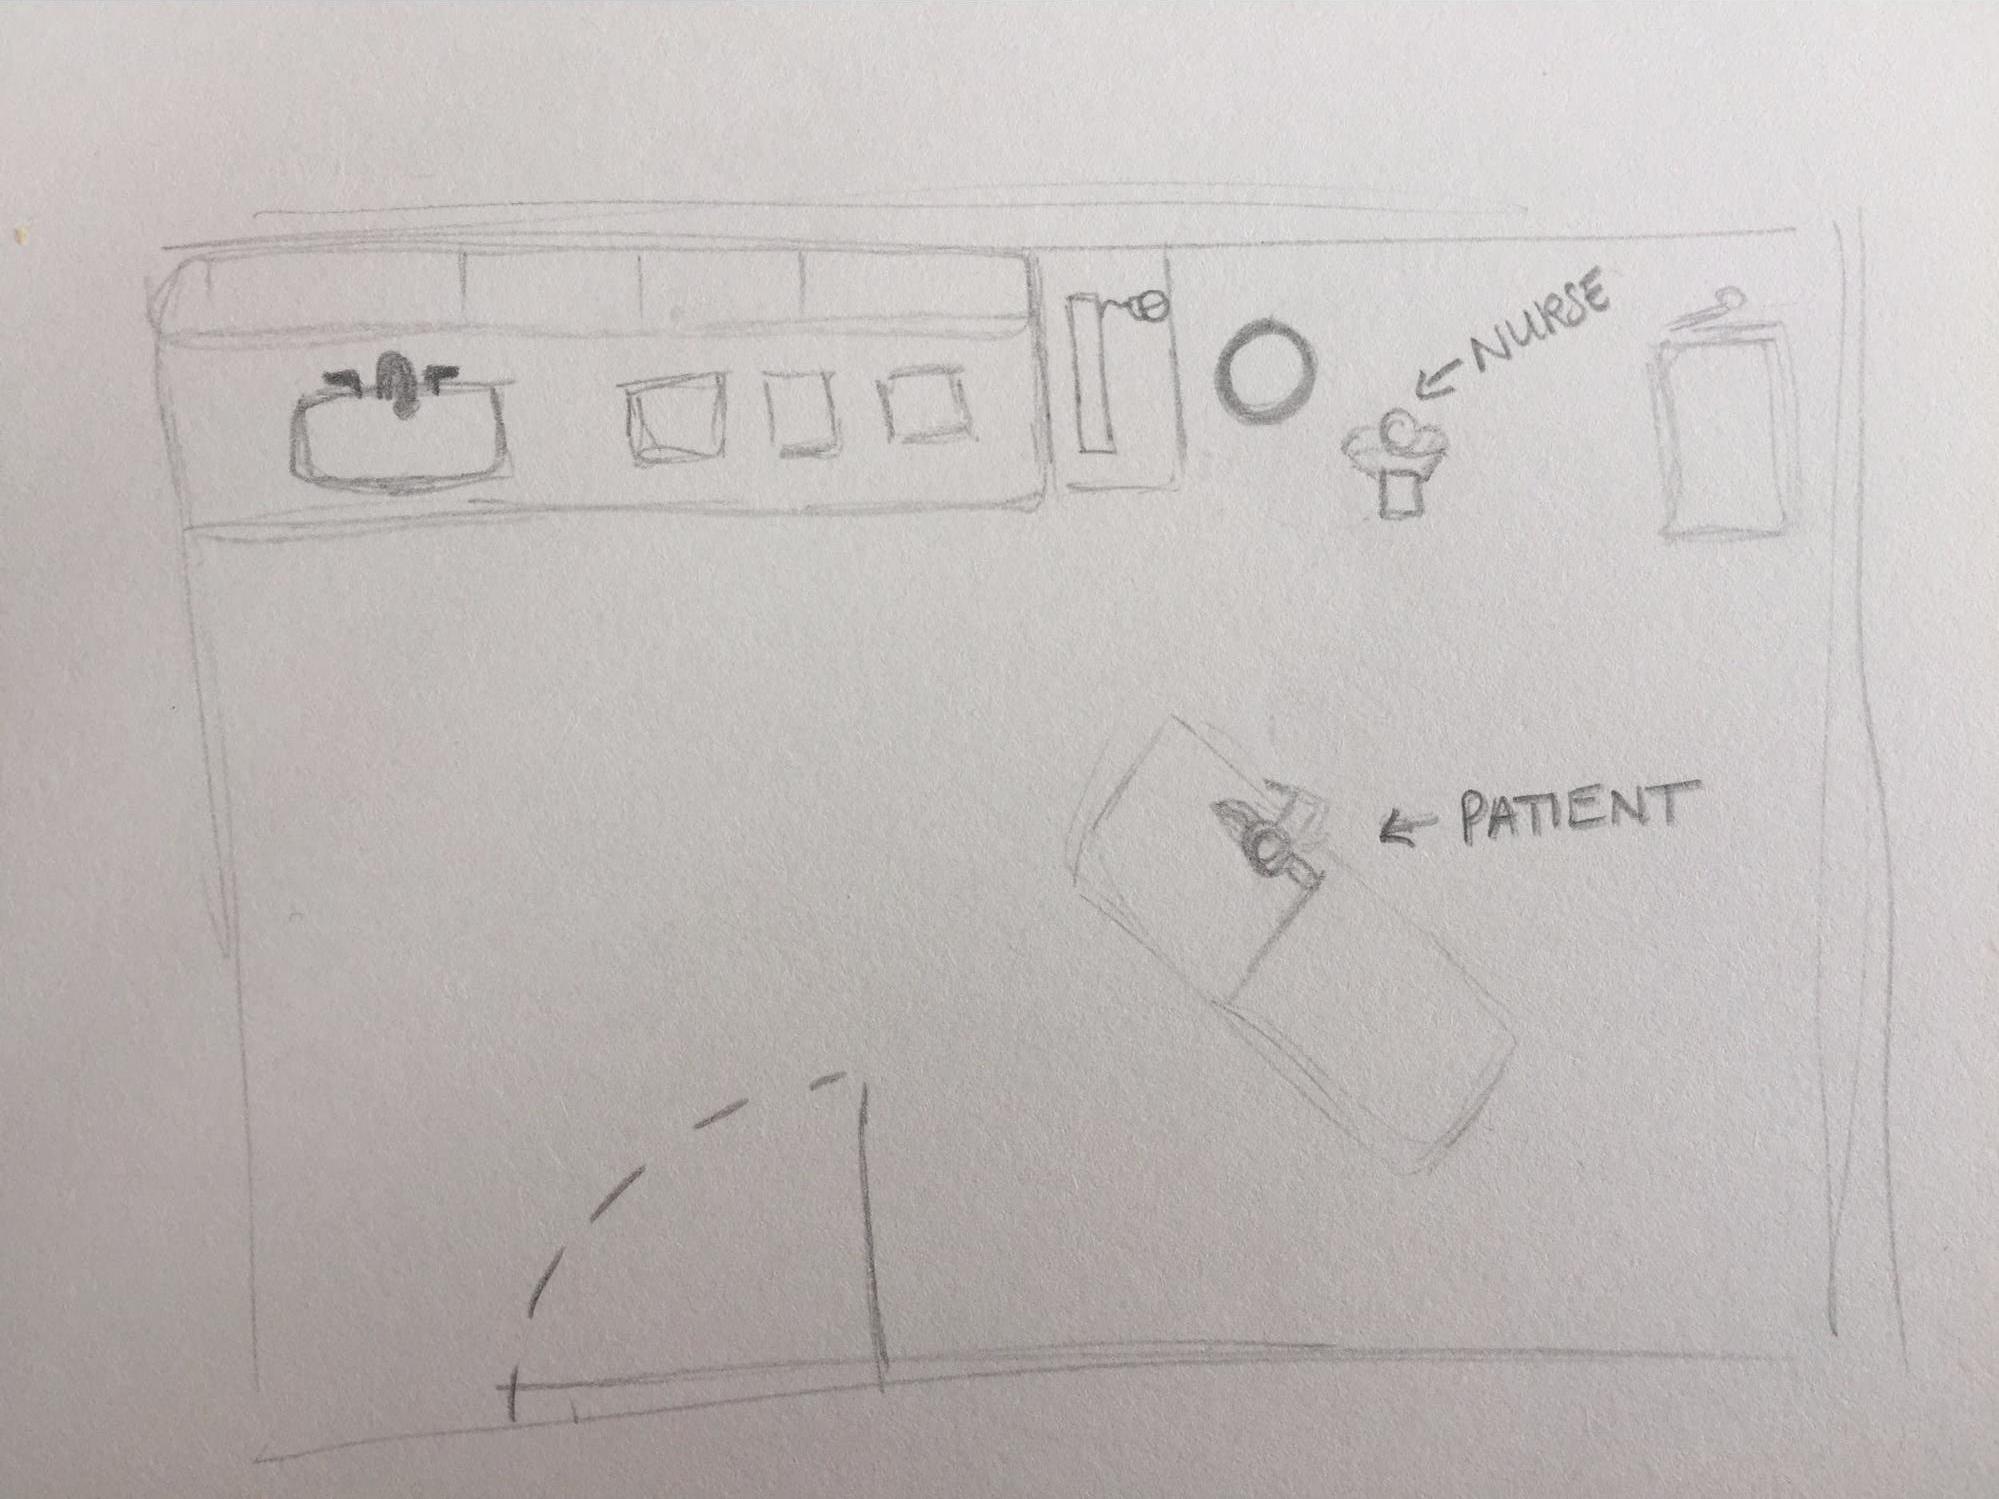 ← NURSE
← PATIENT